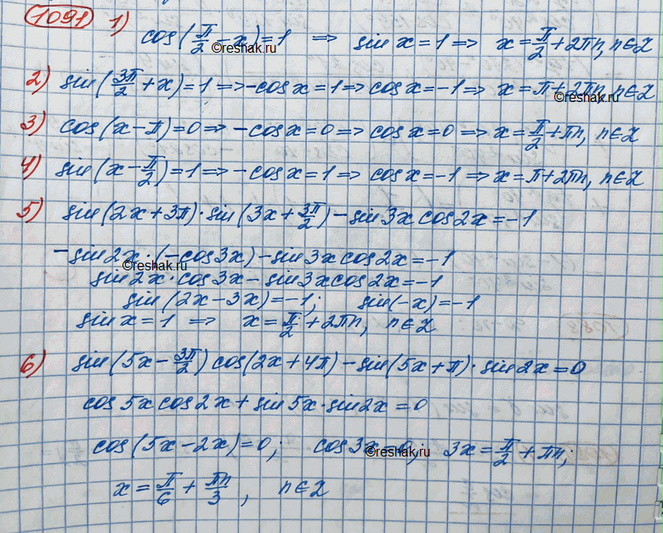 1091 1) cos(π/2 - x) = 1 ⇒ sin x = 1 ⇒ x = π/2 + 2πn, n∈Z
©reshak.ru
2) sin(3π/2 + x) = 1 ⇒ -cos x = 1 ⇒ cos x = -1 ⇒ x = π + 2πn, n∈Z
©reshak.ru
3) cos(x - π) = 0 ⇒ -cos x = 0 ⇒ cos x = 0 ⇒ x = π/2 + πn, n∈Z
4) sin(x - π/2) = 1 ⇒ -cos x = 1 ⇒ cos x = -1 ⇒ x = π + 2πn, n∈Z
5) sin(2x + 3π)·sin(3x + 3π/2) - sin 3x cos 2x = -1
-sin 2x·(-cos 3x) - sin 3x cos 2x = -1
©reshak.ru
sin 2x·cos 3x - sin 3x cos 2x = -1
sin(2x - 3x) = -1; sin(-x) = -1
sin x = 1 ⇒ x = π/2 + 2πn, n∈Z
6) sin(5x - 3π/2) cos(2x + 4π) - sin(5x + π)·sin 2x = 0
cos 5x cos 2x + sin 5x·sin 2x = 0
cos(5x - 2x) = 0; cos 3x = 0; 3x = π/2 + πn;
©reshak.ru
x = π/6 + πn/3, n∈Z